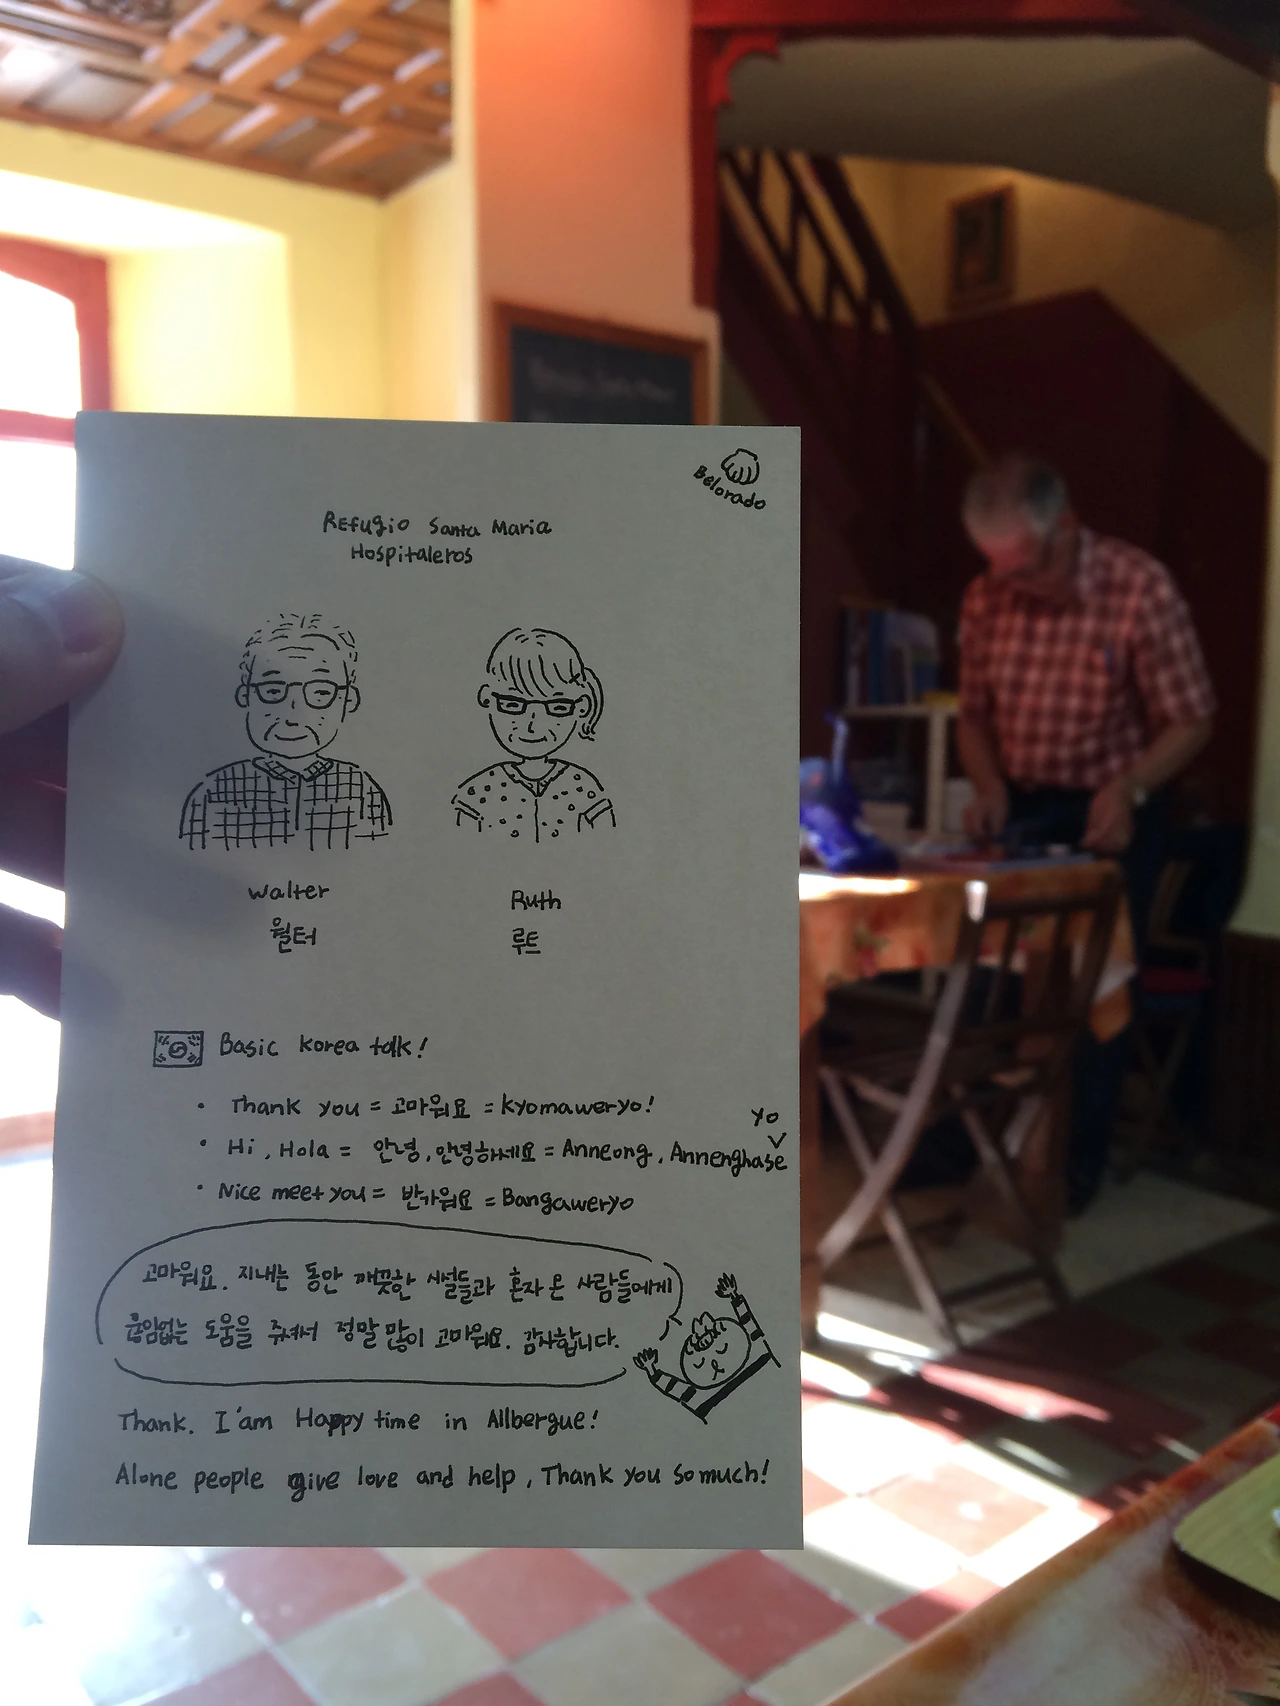 Belorado
Refugio Santa Maria
Hospitaleros
Walter
월터
Ruth
루트
Basic Korea talk!
• Thank you = 고마워요 = kyomaweryo!
• Hi, Hola = 안녕, 안녕하세요 = Anneong, Annenghase yo
• Nice meet you = 반가워요 = Bangaweryo
고마워요. 지내는 동안 깨끗한 시설들과 혼자 온 사람들에게
끊임없는 도움을 주셔서 정말 많이 고마워요. 감사합니다.
Thank. I'am Happy time in Allbergue!
Alone people give love and help, Thank you so much!